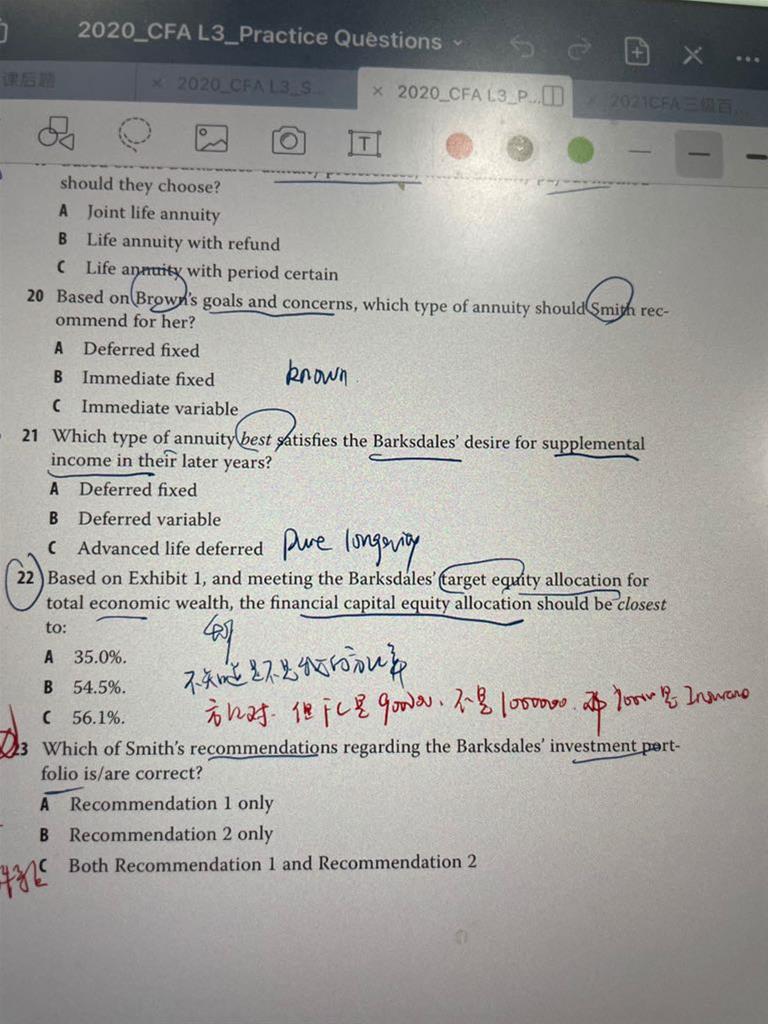 2020_CFA L3_Practice Questions
课后题
× 2020_CFA L3_S...
× 2020_CFA L3_P...
× 2021CFA三级百...
T
should they choose?
A Joint life annuity
B Life annuity with refund
C Life annuity with period certain
20 Based on Brown's goals and concerns, which type of annuity should Smith rec-
ommend for her?
A Deferred fixed
B Immediate fixed known
C Immediate variable
21 Which type of annuity best satisfies the Barksdales' desire for supplemental
income in their later years?
A Deferred fixed
B Deferred variable
C Advanced life deferred Pure longevity
22 Based on Exhibit 1, and meeting the Barksdales' target equity allocation for
total economic wealth, the financial capital equity allocation should be closest
to:
A 35.0%.
不知道是不是
B 54.5%.
C 56.1%.
23 Which of Smith's recommendations regarding the Barksdales' investment port-
folio is/are correct?
A Recommendation 1 only
B Recommendation 2 only
C Both Recommendation 1 and Recommendation 2